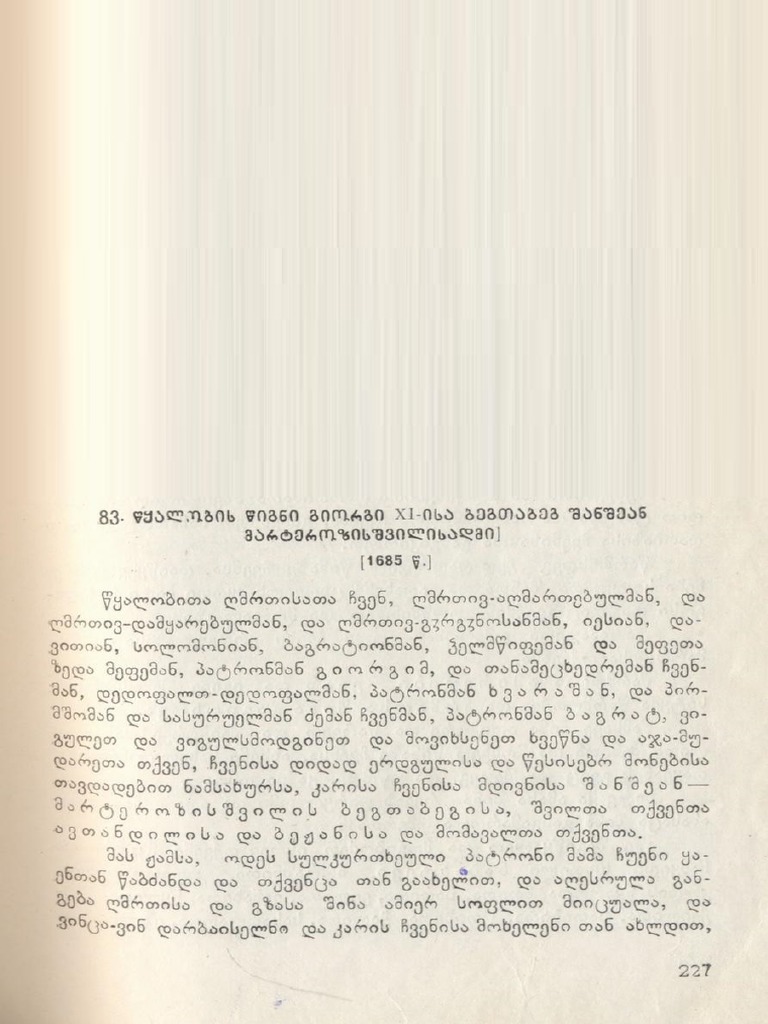 83. წყალობის წიგნი გიორგი XI-ისა ბეგთაბეგ შანშეან
მარტეროზისშვილისადმი]
[1685 წ.]
წყალობითა ღმრთისათა ჩვენ, ღმრთივ-აღმართებულმან, და
ღმრთივ-დამყარებულმან, და ღმრთივ-გჳრგჳნოსანმან, იესიან, და-
ვითიან, სოლომონიან, ბაგრატიონმან, ჴელმწიფემან და მეფეთა
ზედა მეფემან, პატრონმან გიორგიმ, და თანამეცხედრემან ჩვენ-
მან, დედოფალთ-დედოფალმან, პატრონმან ხვარაშან, და პირ-
მშომან და სასურუელმან ძემან ჩვენმან, პატრონმან ბაგრატ, ვი-
გულეთ და ვიგულსმოდგინეთ და მოვიხსენეთ ხვეწნა და აჯა-მუ-
დარეთა თქვენ, ჩვენისა დიდად ერდგულისა და წესისებრ მონებისა
თავდადებით ნამსახურსა, კარისა ჩვენისა მდივნისა შანშეან —
მარტეროზისშვილის ბეგთაბეგისა, შვილთა თქვენთა
ავთანდილისა და ბეჟანისა და მომავალთა თქვენთა.
მას ჟამსა, ოდეს სულკურთხეული პატრონი მამა ჩუენი ყა-
ენთან წაბძანდა და თქვენცა თან გაახელით, და აღესრულა გან-
გება ღმრთისა და გზასა შინა ამიერ სოფლით მიიცუალა, და
ვინცა-ვინ დარბაისელნი და კარის ჩვენისა მოხელენი თან ახლდით,
227